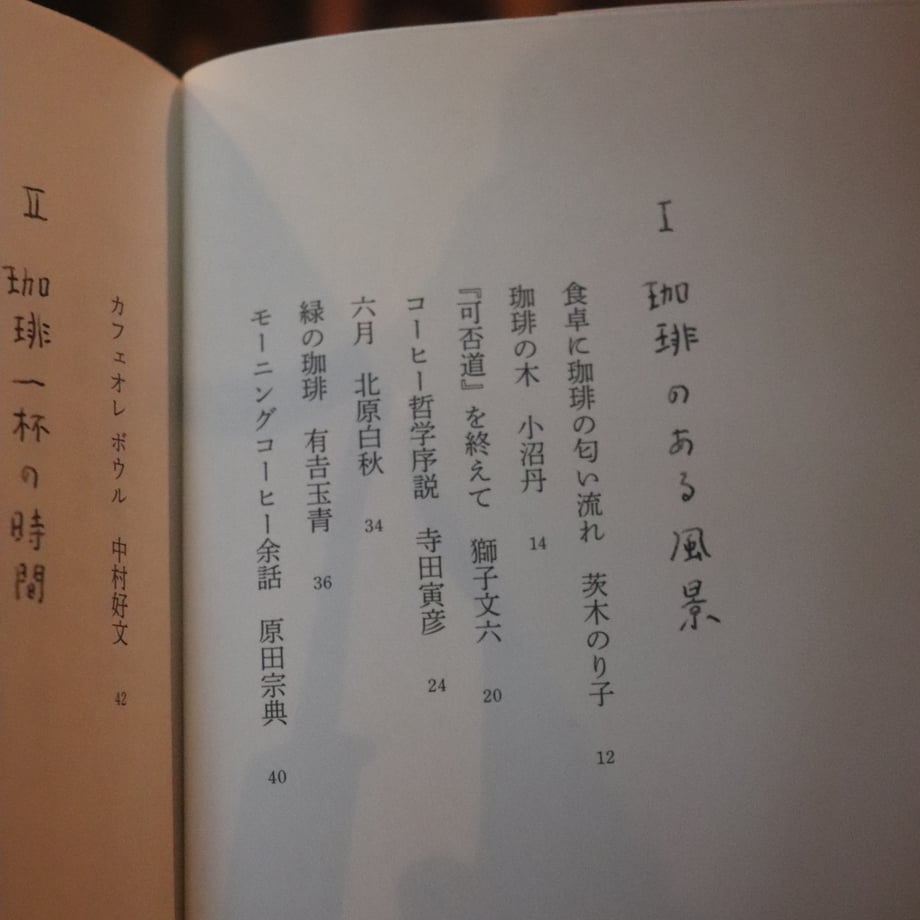 I 珈琲のある風景
食卓に珈琲の匂い流れ 茨木のり子 12
珈琲の木 小沼丹 14
『可否道』を終えて 獅子文六 20
コーヒー哲学序説 寺田寅彦 24
六月 北原白秋 34
緑の珈琲 有𠮷玉青 36
モーニングコーヒー余話 原田宗典 40
II 珈琲一杯の時間
カフェオレ ボウル 中村好文 42